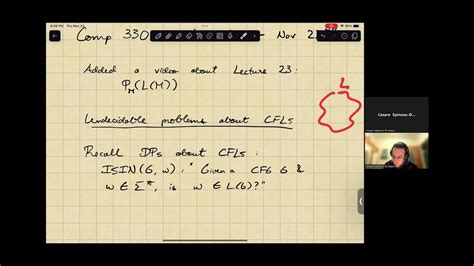 Comp 330 Nov 2
Added a video about Lecture 23:
Φ_M(L(M))
L
Undecidable problems about CFLs
Recall DPs about CFLs:
ISIN(G, w): "Given a CFG G &
w ∈ Σ*, is w ∈ L(G)?"
Cesare Spinoso-D...